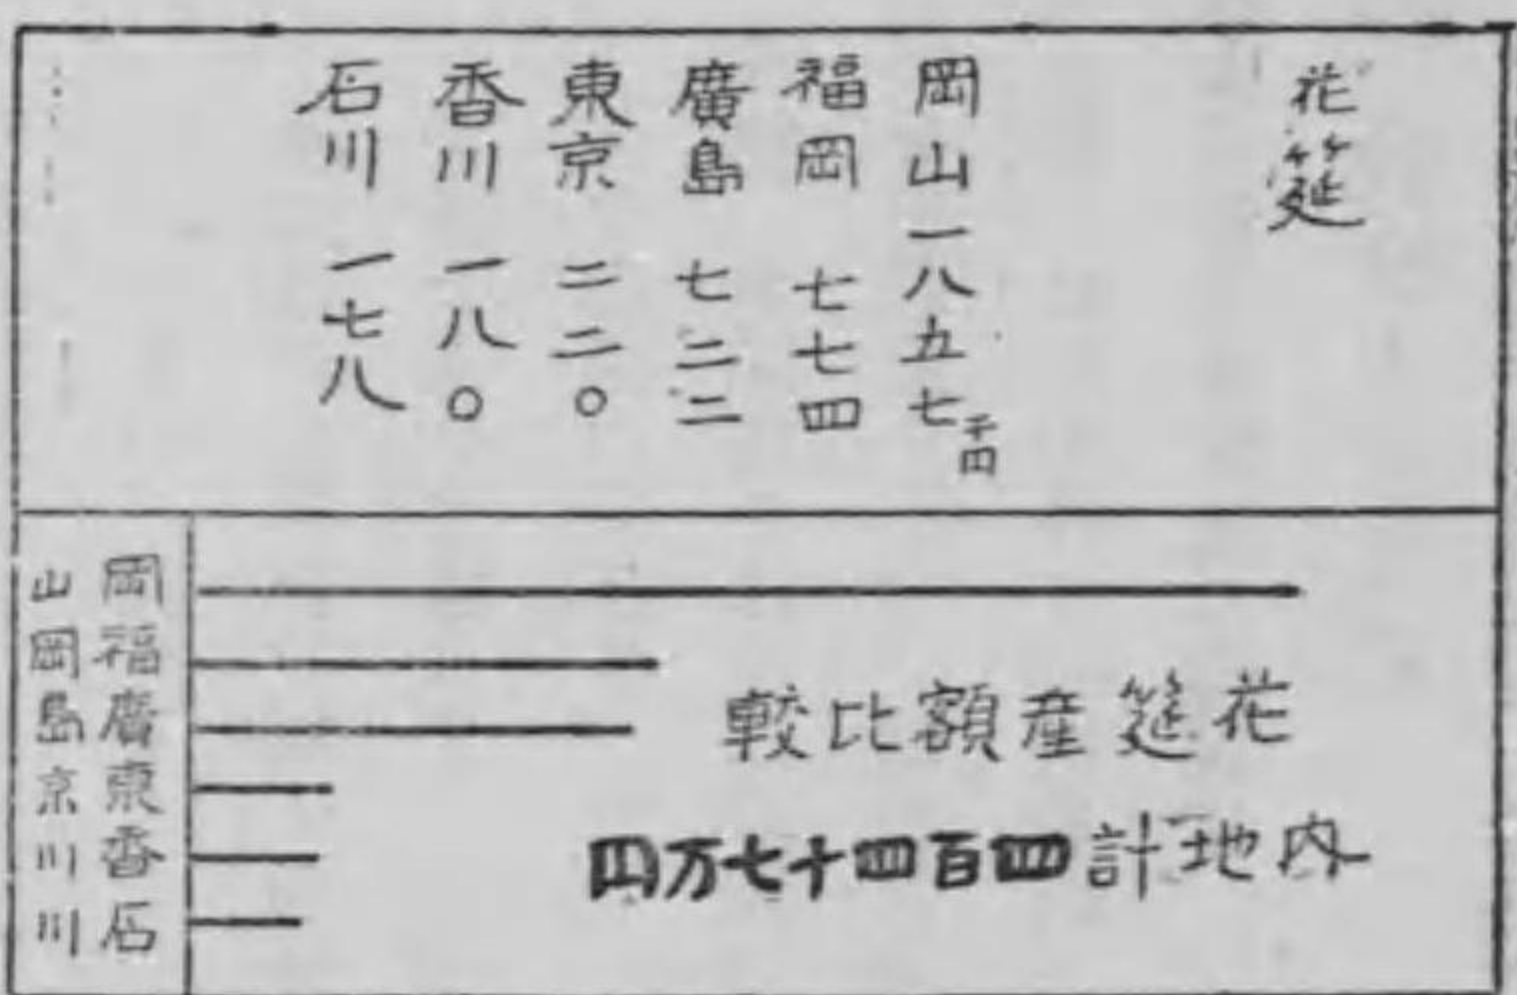 花筵
岡山一八五七千円
福岡七七四
廣島七二二
東京二二〇
香川一八〇
石川一七八
岡山
福岡
廣島
東京
香川
石川
花筵産額比較
内地計四百四十七万円